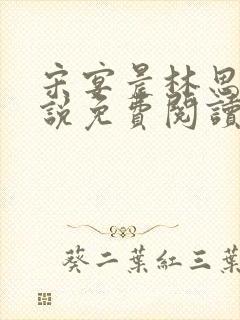 宋宴景林思
說免費閱讀
葵二葉紅三葉